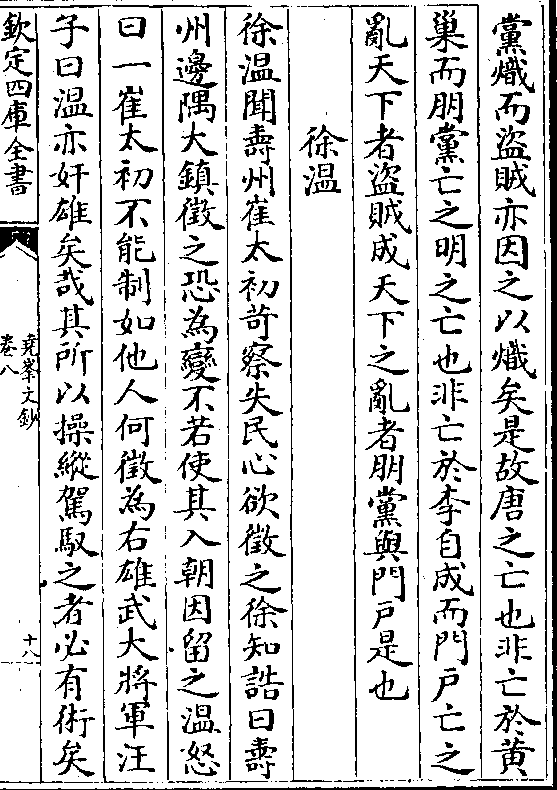 黨熾而盜賊亦因之以熾矣是故唐之亡也非亡於黄
巢而朋黨亡之明之亡也非亡於李自成而門戸亡之
亂天下者盜賊成天下之亂者朋黨與門戸是也
徐溫
徐溫聞壽州崔太初苛察失民心欲徵之徐知誥曰壽
州邊隅大鎮徵之恐為變不若使其入朝因留之溫怒
曰一崔太初不能制如他人何徵為右雄武大將軍汪
子曰溫亦奸雄矣哉其所以操縱駕馭之者必有術矣
欽定四庫全書
堯峯文鈔
卷八
十八